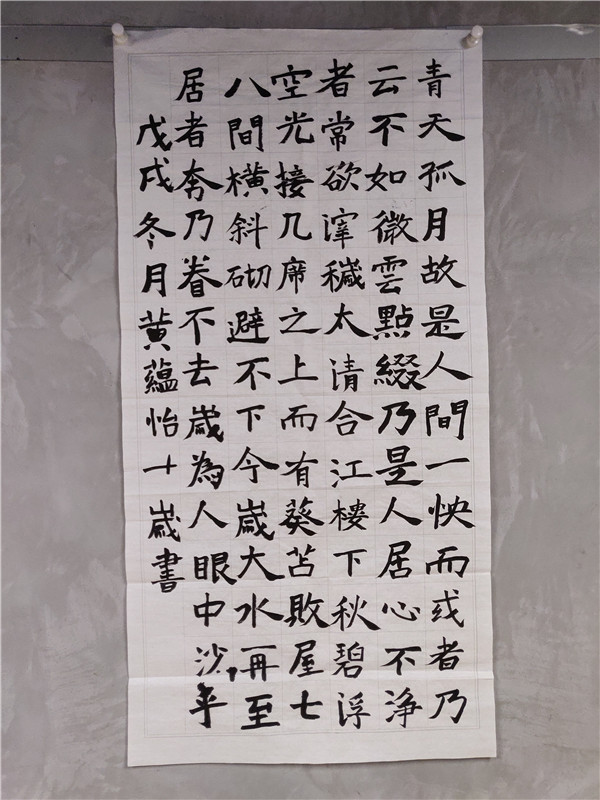 青天孤月故是人間一怏而或者乃
云不如微雲點綴乃是人居心不淨
者常欲滓穢太清合江樓下秋碧浮
空光接几席之上而有葵苫敗屋七
八間橫斜砌避不下今歲大水再至
居者奔乃眷不去歲為人眼中沙乎
戊戌冬月黃蘊怡十歲書